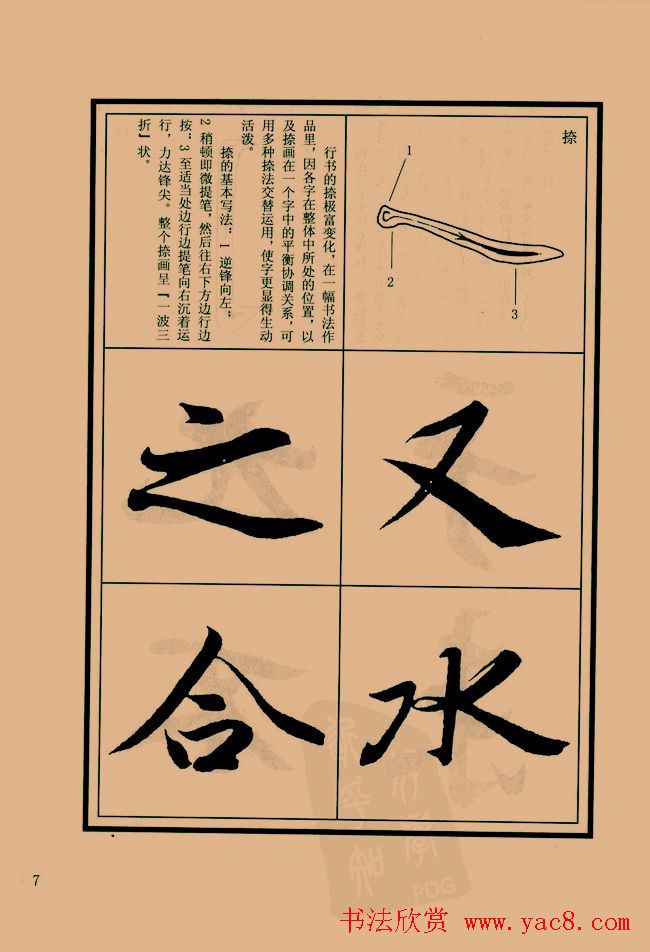 捺
1
2
3
行书的捺极富变化，在一幅书法作
品里，因各字在整体中所处的位置，以
及捺画在一个字中的平衡协调关系，可
用多种捺法交替运用，使字更显得生动
活泼。
捺的基本写法：1 逆锋向左；
2 稍顿即微提笔，然后往右下方边行边
按；3 至适当处边行边提笔向右沉着运
行，力达锋尖。整个捺画呈『一波三
折』状。
又
水
之
合
7
PDG
书法欣赏 www.yac8.com